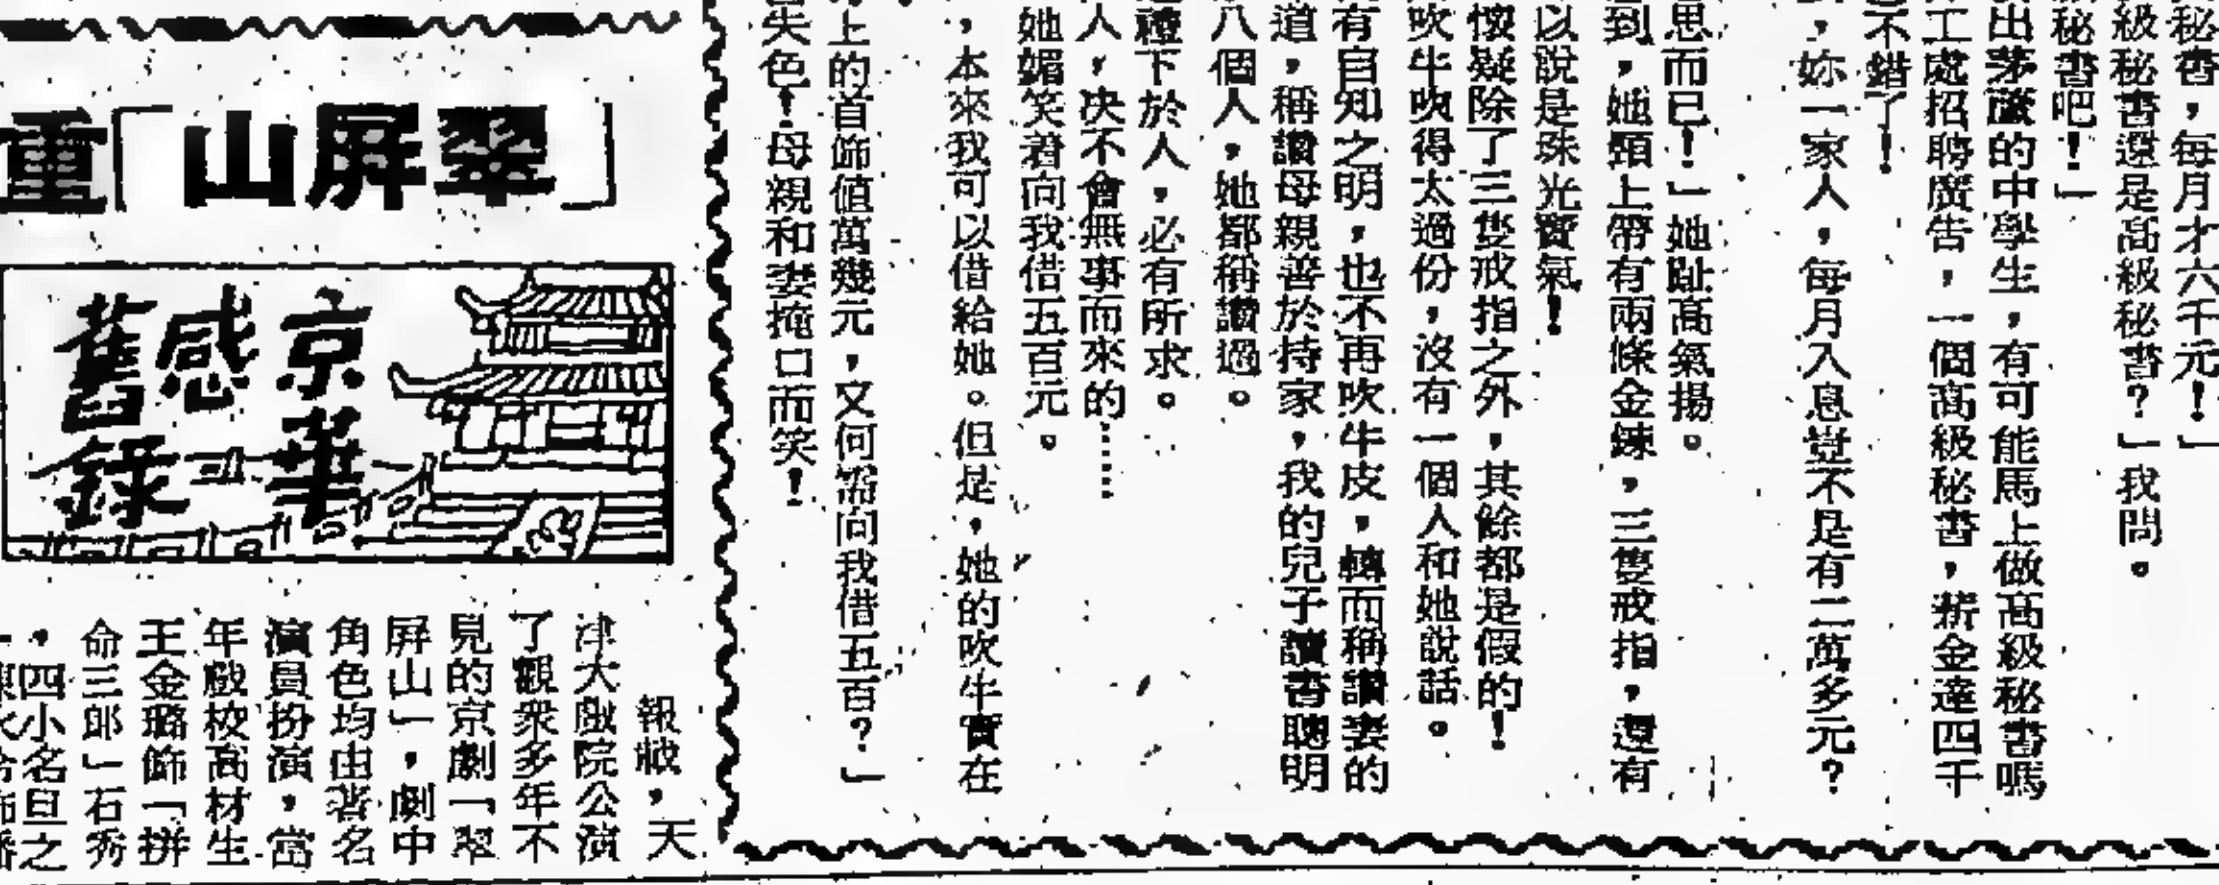 秘書，每月才六千元！」
級秘書還是高級秘書？」我問。
秘書吧！」
出茅蘆的中學生，有可能馬上做高級秘書嗎
工處招聘廣告，一個高級秘書，薪金達四千
不錯了！
，妳一家人，每月入息豈不是有二萬多元？
思而已！」她趾高氣揚。
到，她頸上帶有兩條金鍊，三隻戒指，還有
以說是珠光寶氣！
懷疑除了三隻戒指之外，其餘都是假的！
吹牛吹得太過份，沒有一個人和她說話。
有自知之明，也不再吹牛皮，轉而稱讚妻的
道，稱讚母親善於持家，我的兒子讀書聰明
八個人，她都稱讚過。
禮下於人，必有所求。
人，決不會無事而來的……
她媚笑着向我借五百元。
，本來我可以借給她。但是，她的吹牛實在
上的首飾值萬幾元，又何需向我借五百？」
失色！母親和妻掩口而笑！
重「翠屏山」
京華感舊錄
報載，天
津大戲院公演
了觀眾多年不
見的京劇「翠
屏山」，劇中
角色均由著名
演員扮演，當
年戲校高材生
王金璐飾「拼
命三郎」石秀
，四小名旦之